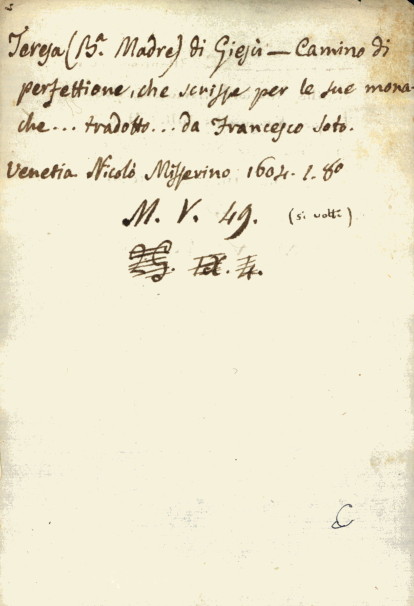 Teresa (Bª. Madre) di Giesù — Camino di
perfettione, che scrisse per le sue mona-
che... tradotto... da Francesco Soto.
Venetia Nicolò Misserino 1604. 1. 8º
M. V. 49. (si volti)
C